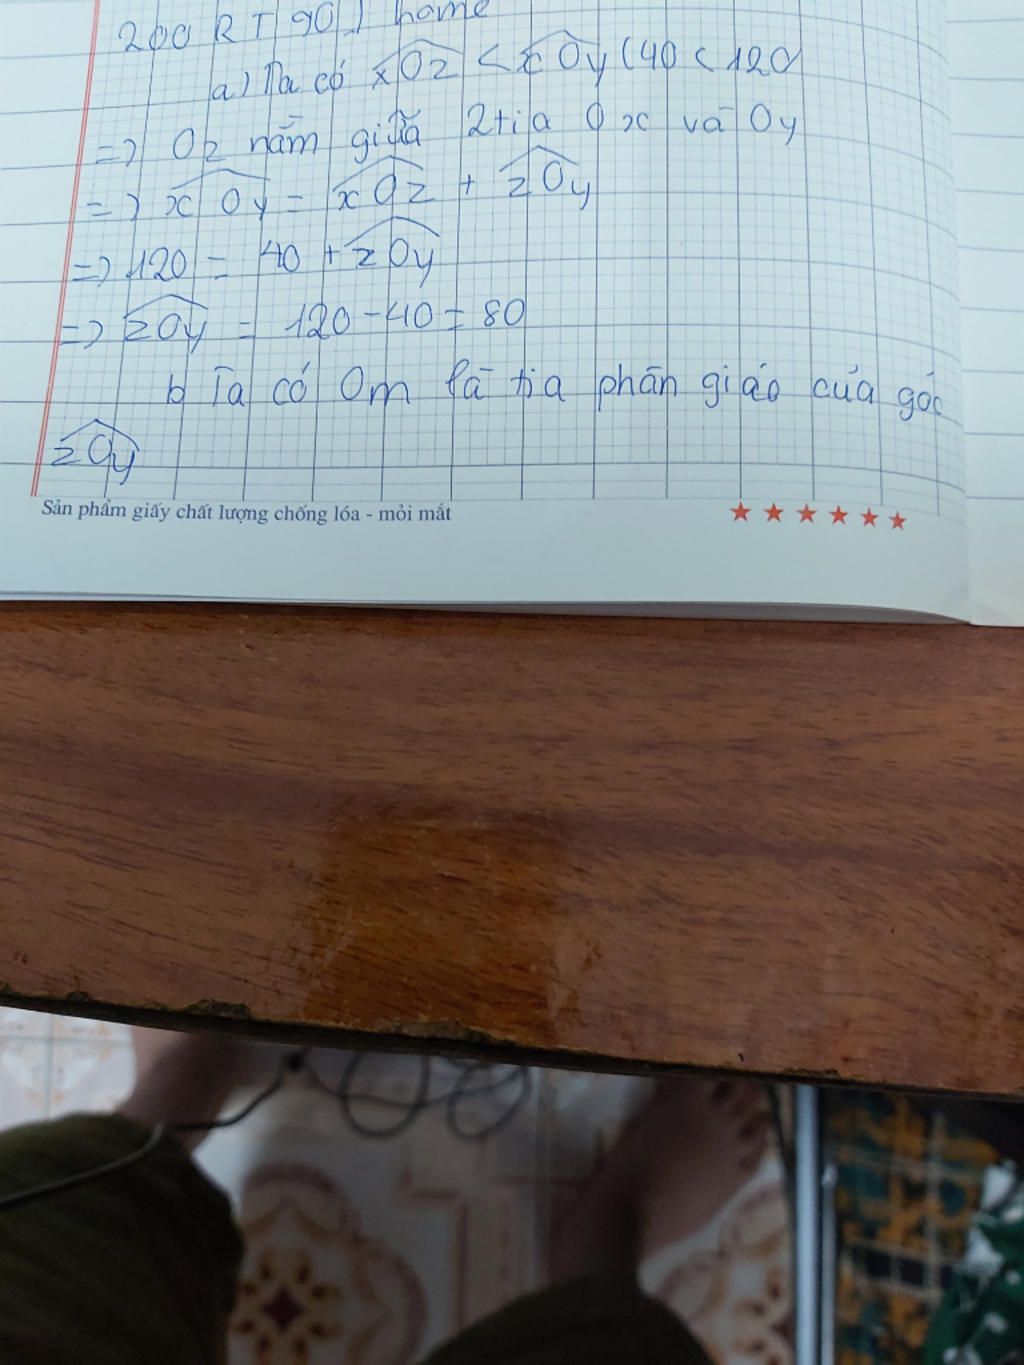 200 RT 90
a) Ta có xOz < xOy (40 < 120
=> Oz nằm giữa 2 tia Ox và Oy
=> xOy = xOz + zOy
=> 120 = 40 + zOy
=> zOy = 120 - 40 = 80
b Ta có Om là tia phân giác của góc
zOy
Sản phẩm giấy chất lượng chống lóa - mỏi mắt